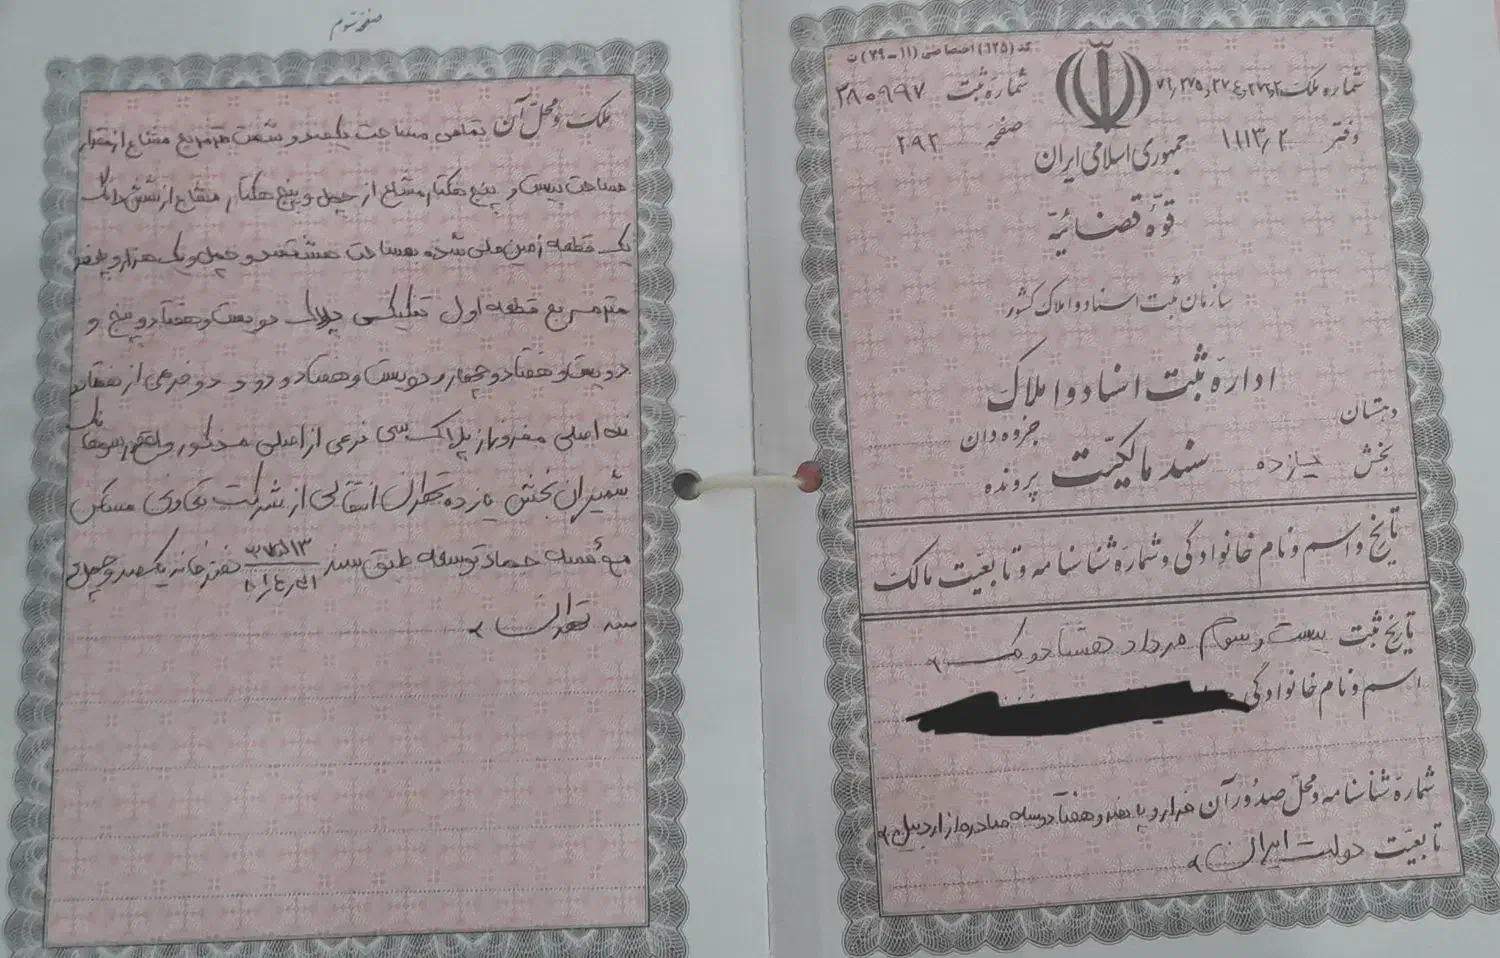 کد (۱۲۵) اختصاصی (۱۱-۷۹) ث
شماره ملک
شماره ثبت ۳۸۰۹۹۷
دفتر ۱۱۱۳/۲ صفحه ۲۹۲
جمهوری اسلامی ایران
قوهٔ قضائیّه
سازمان ثبت اسناد و املاک کشور
ادارهٔ ثبت اسناد و املاک
دهستان
جزوه دان
بخش یازده سند مالکیّت پرونده
تاریخ و اسم و نام خانوادگی و شمارهٔ شناسنامه و تابعیّت مالک
تاریخ ثبت بیست و سوم مرداد هشتاد و یک
اسم و نام خانوادگی
شمارهٔ شناسنامه و محلّ صدور آن هزار و پانصد و هفتاد و سه صادره از اردبیل
تابعیّت دولت ایران
صفحهٔ سوم
ملک و محلّ آن تمامی مساحت یکصد و شصت مترمربع مشاع از
مساحت بیست و پنج هکتار مشاع از چهل و پنج هکتار مشاع از شش دانگ
یک قطعه زمین ملی شده بمساحت هشتصد و چهل و یک هزار و
مترمربع قطعه اول تفکیکی پلاک دویست و هفتاد و پنج و
دویست و هفتاد و چهار و دویست و هفتاد و دو و دو فرعی از هفتاد
نه اصلی مفروز از پلاک سی فرعی از اصلی مذکور واقع در سوهانک
شمیران بخش یازده تهران انتقالی از شرکت تعاونی مسکن
مؤسسه جهاد توسعه طبق سند دفترخانه یکصد و چهل و
سه تهران